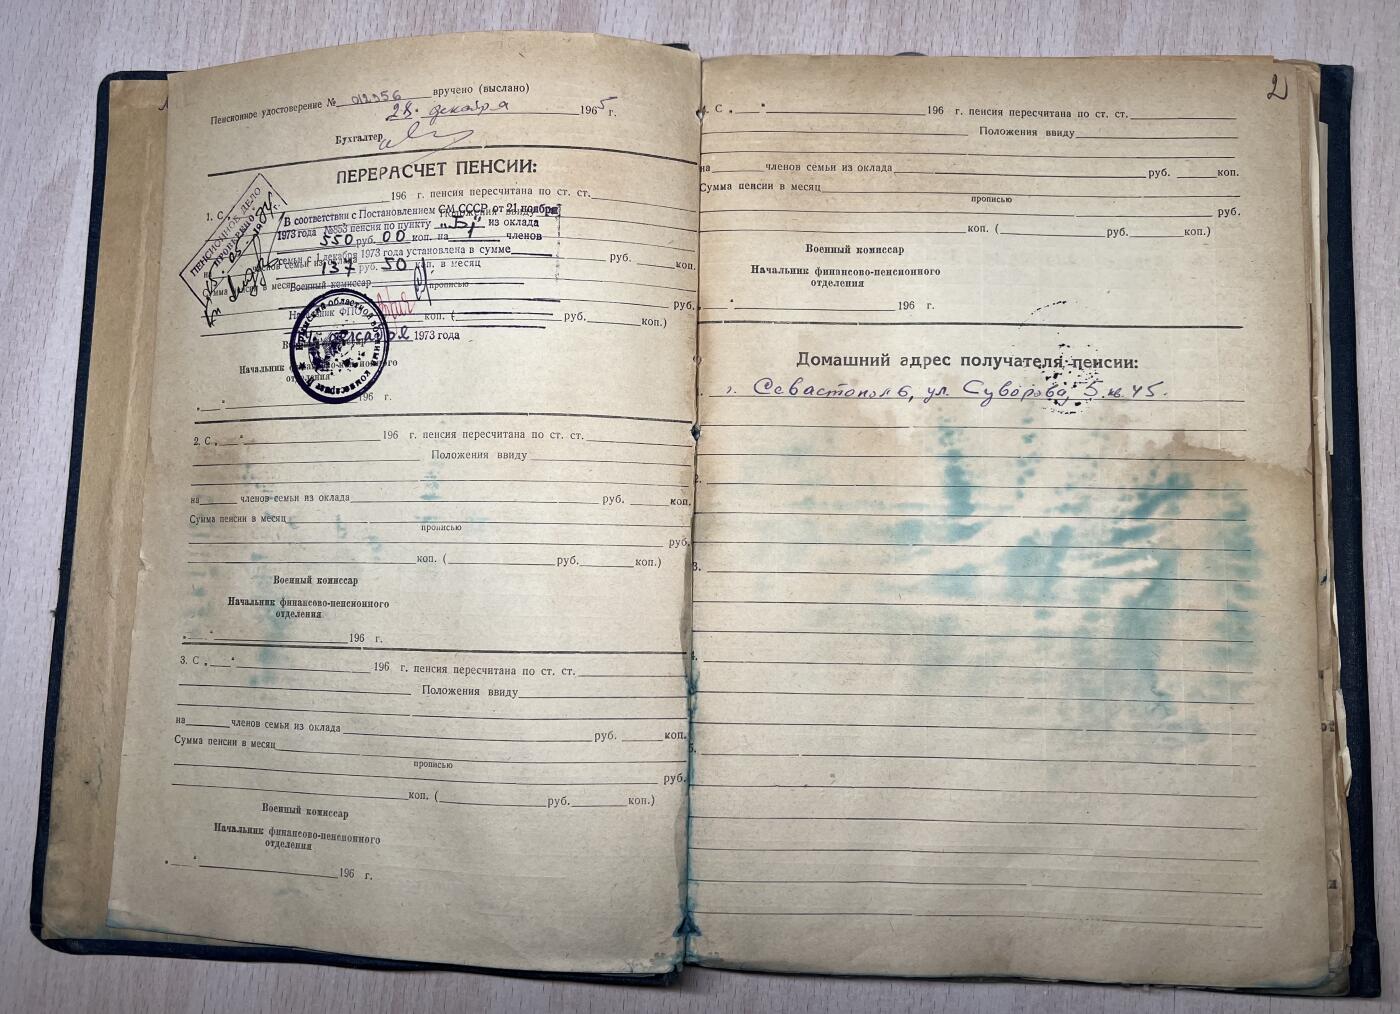 Пенсионное удостоверение № 012956 вручено (выслано)
28. декабря 1965 г.
Бухгалтер
ПЕРЕРАСЧЕТ ПЕНСИИ:
ПЕНСИОННОЕ ДЕЛО
ПРОВЕРЕНО
1. С 196 г. пенсия пересчитана по ст. ст.
Положения ввиду
В соответствии с Постановлением СМ СССР от 21 ноября
1973 года №853 пенсия по пункту „Б" из оклада
550 руб. 00 коп. на членов
семьи с 1 декабря 1973 года установлена в сумме
137 руб. 50 коп. в месяц
на членов семьи из оклада руб. коп.
Сумма пенсии в месяц
прописью
руб.
Военный комиссар
Начальник ФПО
коп. ( руб. коп.)
декабря 1973 года
Крымский областной военный комиссариат
Военный комиссар
Начальник финансово-пенсионного
отделения
196 г.
2. С 196 г. пенсия пересчитана по ст. ст.
Положения ввиду
на членов семьи из оклада руб. коп.
Сумма пенсии в месяц
прописью
руб.
коп. ( руб. коп.)
Военный комиссар
Начальник финансово-пенсионного
отделения
196 г.
3. С 196 г. пенсия пересчитана по ст. ст.
Положения ввиду
на членов семьи из оклада руб. коп.
Сумма пенсии в месяц
прописью
руб.
коп. ( руб. коп.)
Военный комиссар
Начальник финансово-пенсионного
отделения
196 г.
2
4. С 196 г. пенсия пересчитана по ст. ст.
Положения ввиду
на членов семьи из оклада руб. коп.
Сумма пенсии в месяц
прописью
руб.
коп. ( руб. коп.)
Военный комиссар
Начальник финансово-пенсионного
отделения
196 г.
Домашний адрес получателя пенсии:
г. Севастополь, ул. Суворова, 5. кв. 45.
2.
3.
4.
5.